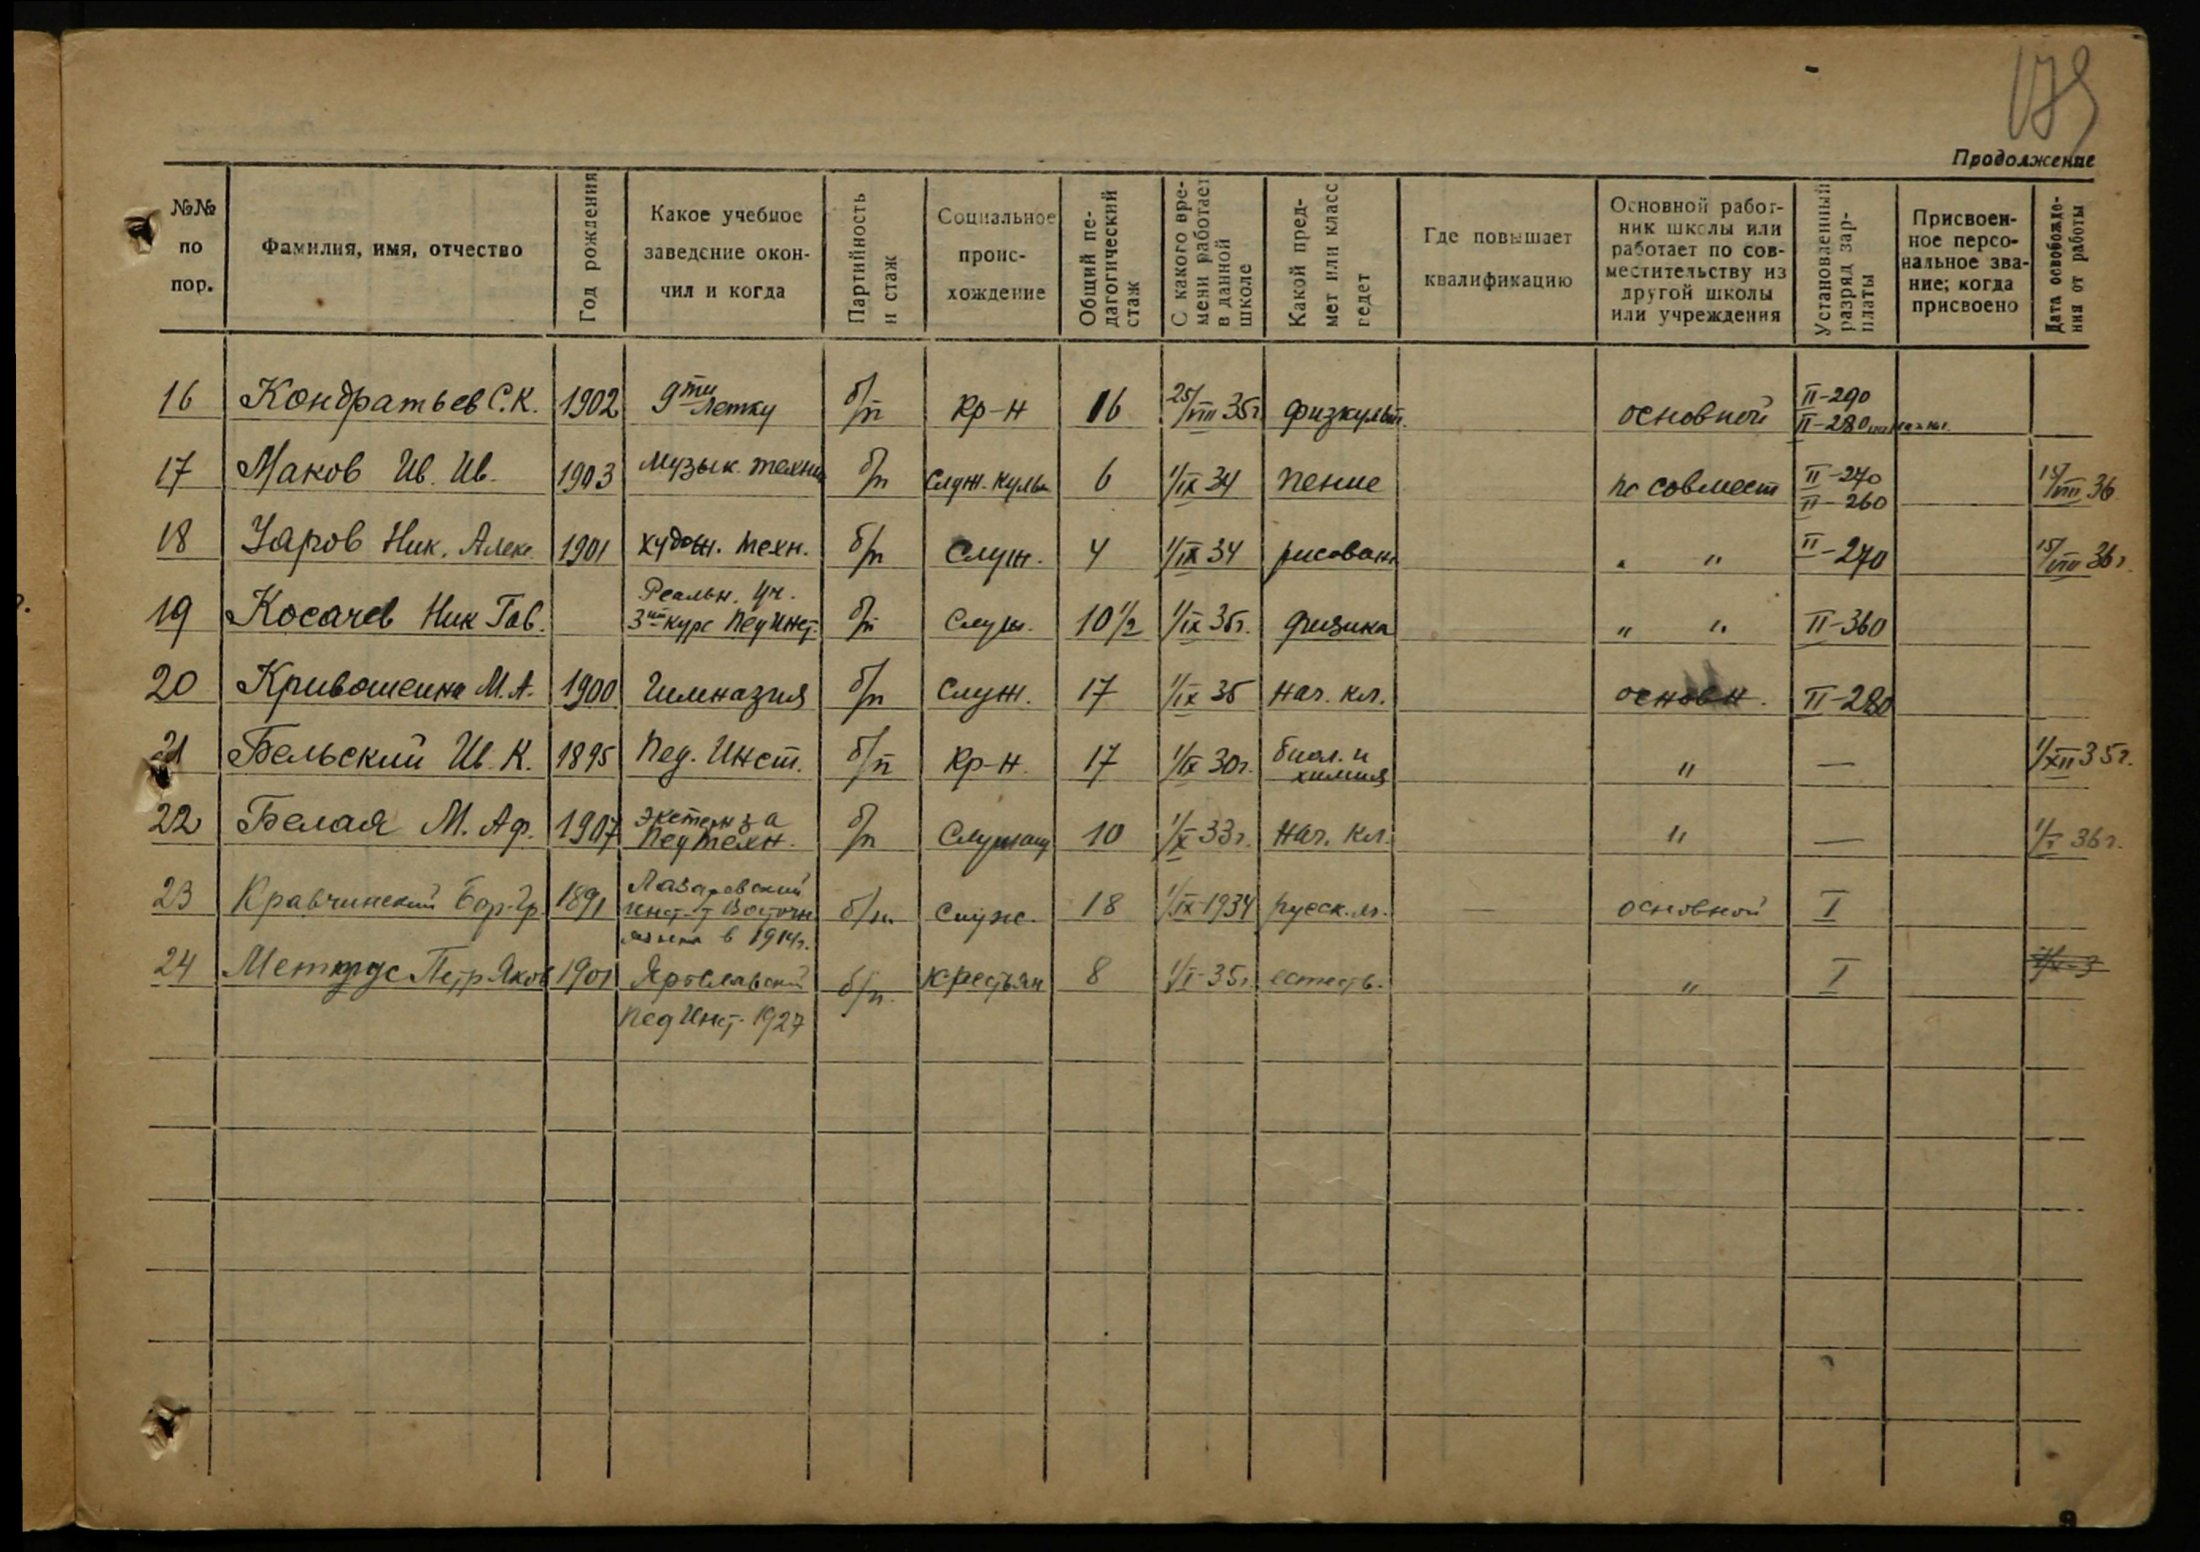 179
Продолжение
№№ по пор.
Фамилия, имя, отчество
Год рождения
Какое учебное заведение окончил и когда
Партийность и стаж
Социальное происхождение
Общий педагогический стаж
С какого времени работает в данной школе
Какой предмет или класс ведет
Где повышает квалификацию
Основной работник школы или работает по совместительству из другой школы или учреждения
Установленный разряд зарплаты
Присвоенное персональное звание; когда присвоено
Дата освобождения от работы
16 Кондратьев С.К. 1902 9ти летку б/п Кр-н 16 25/VIII 35г физкульт. основной II-290 II-280
17 Маков Ив. Ив. 1903 Музык. техни б/п Служ. 6 1/IX 34 пение по совмест II-270 II-260 15/VIII 36
18 Уаров Ник. Алекс 1901 худож. техн. б/п Служ. 4 1/IX 34 рисован " " II-270 15/VIII 36г.
Реальн. уч.
19 Косачев Ник Гав. 3й курс ПедИнст. б/п Служ. 10 1/2 1/IX 35г. физика " " II-360
20 Кривошеина М.А. 1900 Гимназия б/п Служ. 17 1/IX 35 нач. кл. основн. II-280
21 Бельский Ив. К. 1895 Пед. Инст. б/п Кр-н. 17 1/IX 30г. биол. и химия " — 1/XII 35г.
22 Белая М. Аф. 1907 экстерн за ПедТехн. б/п Служащ 10 1/X 33г. Нач. кл. " — 1/I 36г.
23 Кравчинский Бор. Гр. 1891 Лазаревский инст-т Восточн языка в 1914г. б/п. служ. 18 1/IX-1934 русск. яз. — основной I
24 Петр Яков 1901 Ярославский б/п. Крестьян 8 1/I-35г. естеств. " I
Пед Инст. 1927
9